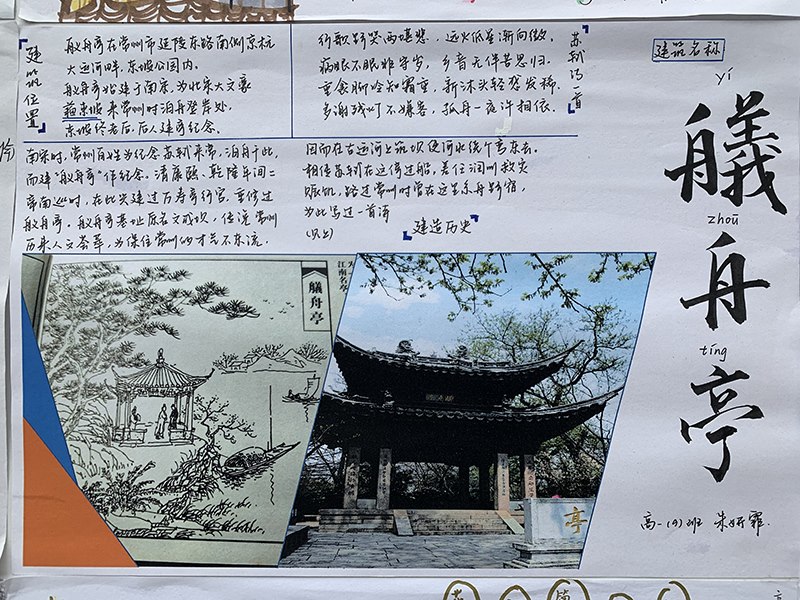 建筑位置
舣舟亭在常州市延陵东路南侧京杭
大运河畔,东坡公园内。
舣舟亭始建于南宋,为北宋大文豪
苏东坡来常州时泊舟登岸处,
东坡终老后,后人建亭纪念。
行歌野哭两堪悲,远火低星渐向微。
病眼不眠非守岁,乡音无伴苦思归。
重衾脚冷知霜重,新沐头轻感发稀。
多谢残灯不嫌客,孤舟一夜许相依。
苏轼诗一首
南宋时,常州百姓为纪念苏轼来常,泊舟于此,
而建“舣舟亭”作纪念。清康熙、乾隆年间二
帝南巡时,在此兴建过万寿亭行宫,重修过
舣舟亭。舣舟亭基址原名文成坝,传说常州
历来人文荟萃,为保住常州的才气不东流,
因而在古运河上筑坝使河水绕个弯东去。
相传苏轼在这停过船,差任润州救灾
赈饥,路过常州时曾在这里系舟野宿,
为此写过一首诗
(以上)
建造历史
建筑名称
yǐ
艤
zhōu
舟
tíng
亭
江南名亭
艤舟亭
亭
高一(9)班 朱妍霏